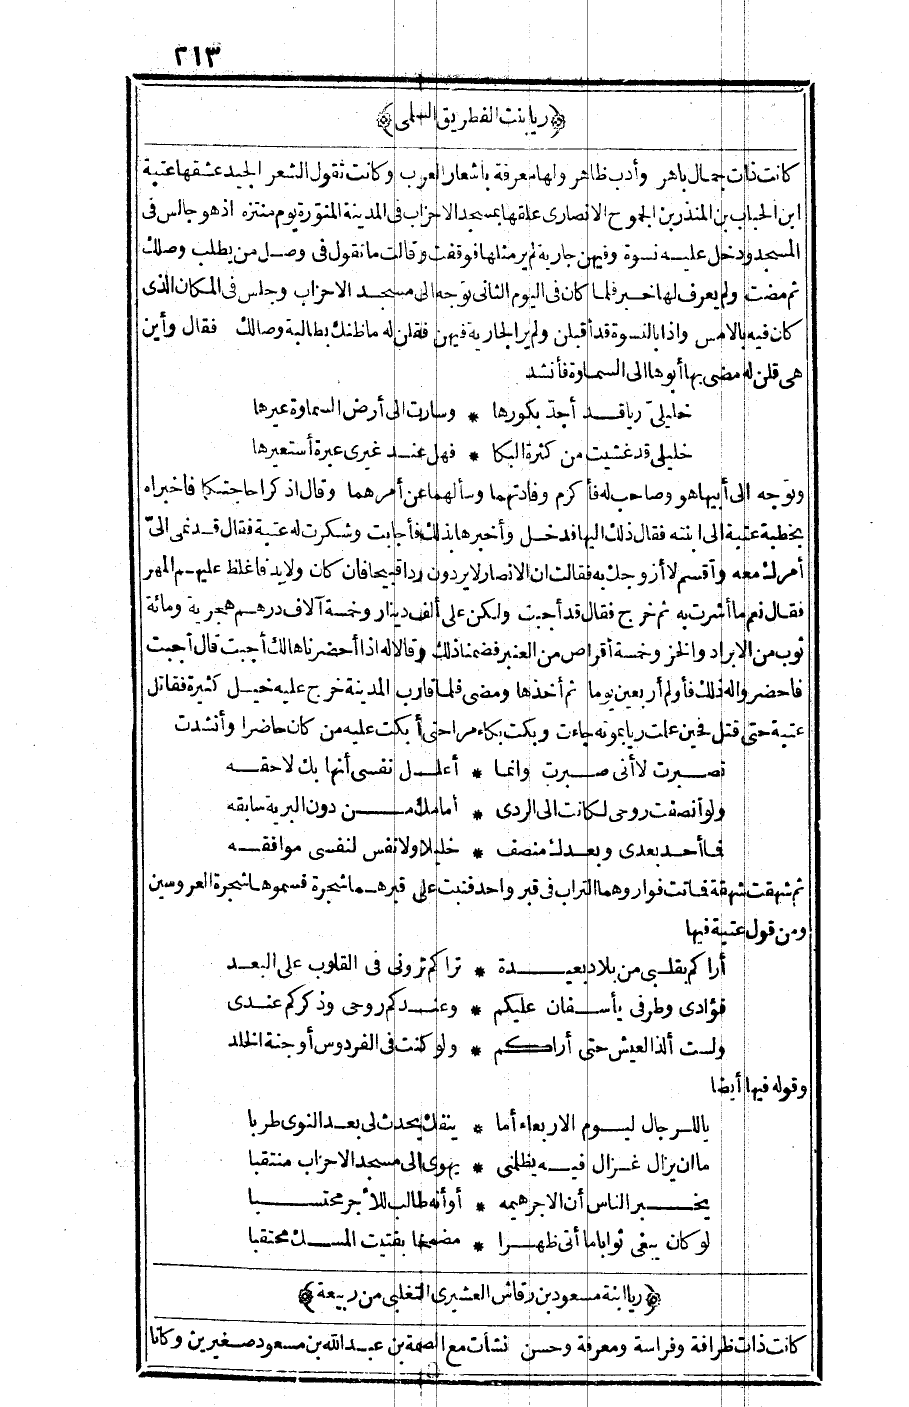 ٢١٣
﴿ريا بنت الغطريق السلمى﴾
كانت ذات جمال باهر وأدب ظاهر ولها معرفة باشعار العرب وكانت تقول الشعر الجيد عشقها عتبة
ابن الحباب بن المنذر بن الجموح الانصارى علقها بمسجد الاحزاب فى المدينة المنوّرة يوم منتزه اذ هو جالس فى
المسجد ودخل عليه نسوة وفيهن جارية لم ير مثلها فوقفت وقالت ما تقول فى وصل من يطلب وصلك
ثم مضت ولم يعرف لها خبر فلما كان فى اليوم الثانى توجه الى مسجد الاحزاب وجلس فى المكان الذى
كان فيه بالامس واذا بالنسوة قد أقبلن ولم ير الجارية فيهن فقلن له ما ظنك بطالبة وصالك فقال وأين
هى قلن له مضى بها أبوها الى السماوة فأنشد
خليلىّ ريا قد أجدّ بكورها * وسارت الى أرض السماوة عيرها
خليلى قد غشيت من كثرة البكا * فهل عند غيرى عبرة أستعيرها
وتوجه الى أبيها هو وصاحب له فأكرم وفادتهما وسألهما عن أمرهما وقال اذكرا حاجتكما فاخبراه
بخطبة عتبة الى ابنته فقال ذلك اليها فدخل وأخبرها بذلك فأجابت وشكرت له عتبة فقال قد نمى الىّ
أمرك معه وأقسم لا أزوجك به فقالت ان الانصار لا يردون ردا قبيحا فان كان ولا بد فاغلظ عليهم المهر
فقال نعم ما أشرت به ثم خرج فقال قد أجبت ولكن على ألف دينار وخمسة آلاف درهم هجرية ومائة
ثوب من الابراد والخز وخمسة أقراص من العنبر فضمنا ذلك وقالا له اذا أحضرناها لك أجبت قال أجبت
فاحضر واله ذلك فأولم أربعين يوما ثم أخذها ومضى فلما قارب المدينة خرج عليه خيل كثيرة فقاتل
عتبة حتى قتل فحين علمت ريا بموته جاءت وبكت بكاء مرا حتى أبكت عليه من كان حاضرا وأنشدت
تصبرت لا أنى صبرت وانما * أعلل نفسى أنها بك لاحقه
ولو أنصفت روحى لكانت الى الردى * أمامك من دون البرية سابقه
فما أحد بعدى وبعدك منصف * خليلا ولا نفس لنفسى موافقه
ثم شهقت شهقة فماتت فواروهما التراب فى قبر واحد فنبت على قبرهما شجرة فسموها شجرة العروسين
ومن قول عتبة فيها
أراكم بقلبى من بلاد بعيدة * تراكم ترونى فى القلوب على البعد
فؤادى وطرفى يأسفان عليكم * وعندكم روحى وذكركم عندى
ولست ألذ العيش حتى أراكم * ولو كنت فى الفردوس أو جنة الخلد
وقوله فيها أيضا
ياللرجال ليوم الاربعاء أما * ينفك يحدث لى بعد النوى طربا
ما ان يزال غزال فيه يظلمنى * يهوى الى مسجد الاحزاب منتقبا
يخبر الناس أن الاجر هيمه * أو أنه طالب للأجر محتسبا
لو كان يبغى ثوابا ما أتى ظهرا * مضمخا بفتيت المسك محتقبا
﴿ريا ابنة مسعود بن رقاش العشيرى التغلبى من ربيعة﴾
كانت ذات ظرافة وفراسة ومعرفة وحسن نشأت مع الصمة بن عبد الله بن مسعود صغيرين وكانا